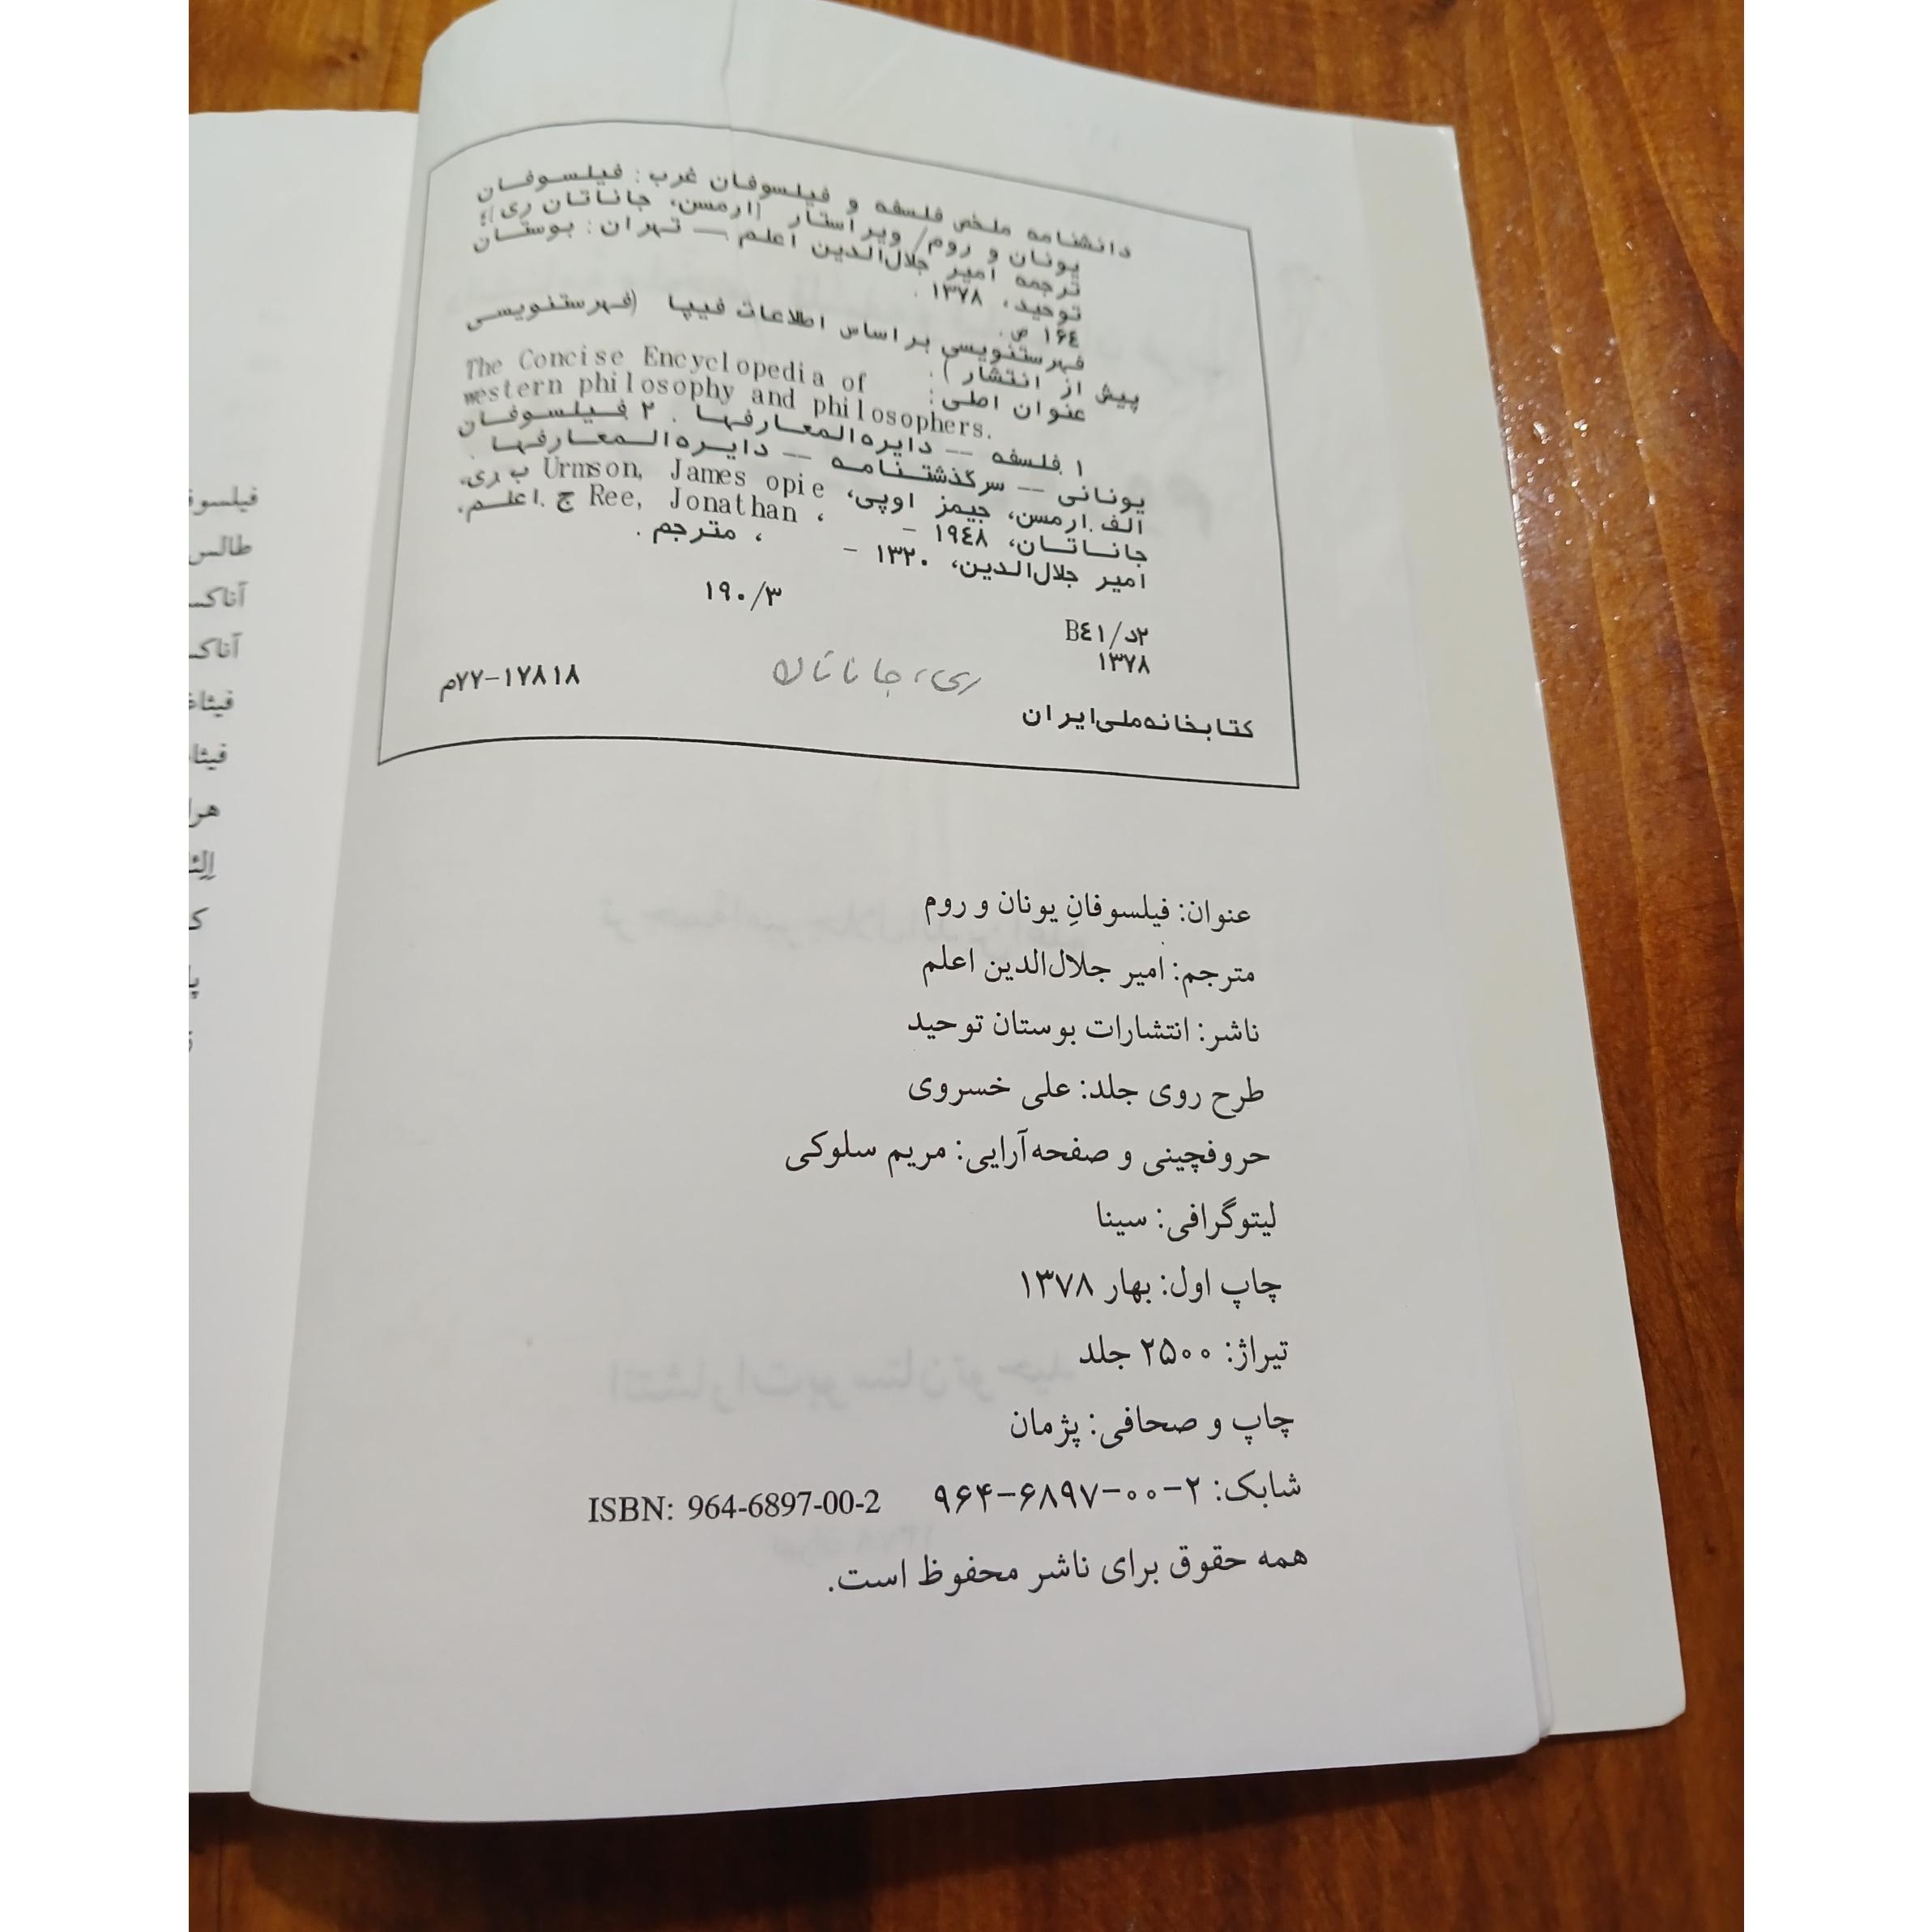 دانشنامه ملخص فلسفه و فیلسوفان غرب: فیلسوفان
یونان و روم/ ویراستار [ارمسن، جاناتان ری]؛
ترجمه امیر جلال‌الدین اعلم. — تهران: بوستان
توحید، ۱۳۷۸.
۱۶۴ ص.
فهرستنویسی براساس اطلاعات فیپا (فهرستنویسی
پیش از انتشار).
عنوان اصلی: The Concise Encyclopedia of
western philosophy and philosophers.
۱. فلسفه -- دایره‌المعارفها. ۲. فیلسوفان
یونانی -- سرگذشتنامه -- دایره‌المعارفها.
الف. ارمسن، جیمز اوپی، Urmson, James opie ب. ری،
جاناتان، ۱۹۴۸ - ، Ree, Jonathan ج. اعلم،
امیر جلال‌الدین، ۱۳۲۰ - ، مترجم.
۱۹۰/۳
B۴۱/د۲
۱۳۷۸
ری، جاناتان
م۷۷-۱۷۸۱۸
کتابخانه ملی ایران
عنوان: فیلسوفانِ یونان و روم
مترجم: امیر جلال‌الدین اعلم
ناشر: انتشارات بوستان توحید
طرح روی جلد: علی خسروی
حروفچینی و صفحه‌آرایی: مریم سلوکی
لیتوگرافی: سینا
چاپ اول: بهار ۱۳۷۸
تیراژ: ۲۵۰۰ جلد
چاپ و صحافی: پژمان
شابک: ۲-۰۰-۶۸۹۷-۹۶۴ ISBN: 964-6897-00-2
همه حقوق برای ناشر محفوظ است.
طالس